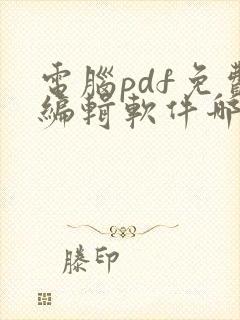 電腦pdf免費
編輯軟件哪
滕印